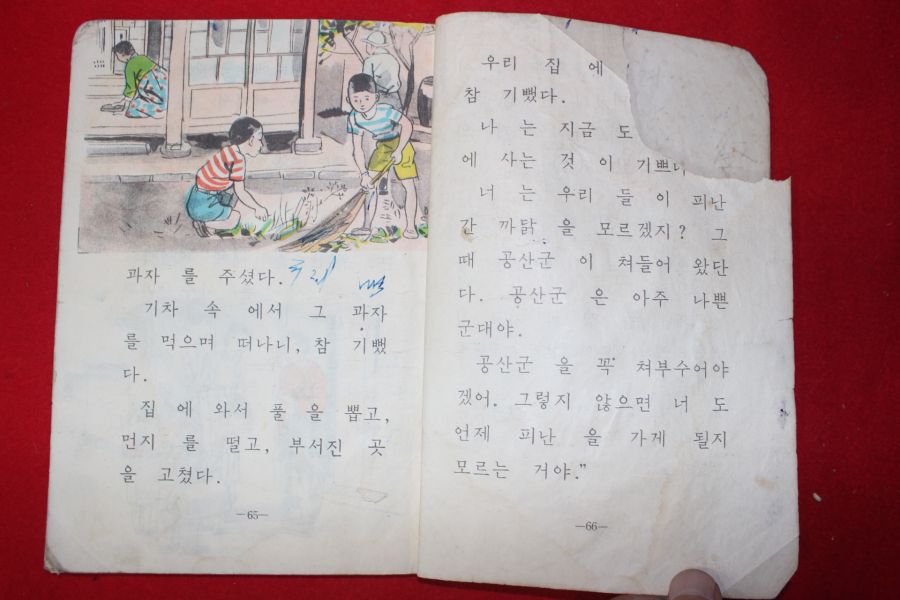 과자 를 주셨다.
기차 속 에서 그 과자
를 먹으며 떠나니, 참 기뻤
다.
집 에 와서 풀 을 뽑고,
먼지 를 떨고, 부서진 곳
을 고쳤다.
—65—
우리 집 에
참 기뻤다.
나 는 지금 도
에 사는 것 이 기쁘
너 는 우리 들 이 피난
간 까닭 을 모르겠지? 그
때 공산군 이 쳐들어 왔단
다. 공산군 은 아주 나쁜
군대야.
공산군 을 꼭 쳐부수어야
겠어. 그렇지 않으면 너 도
언제 피난 을 가게 될지
모르는 거야.”
—66—